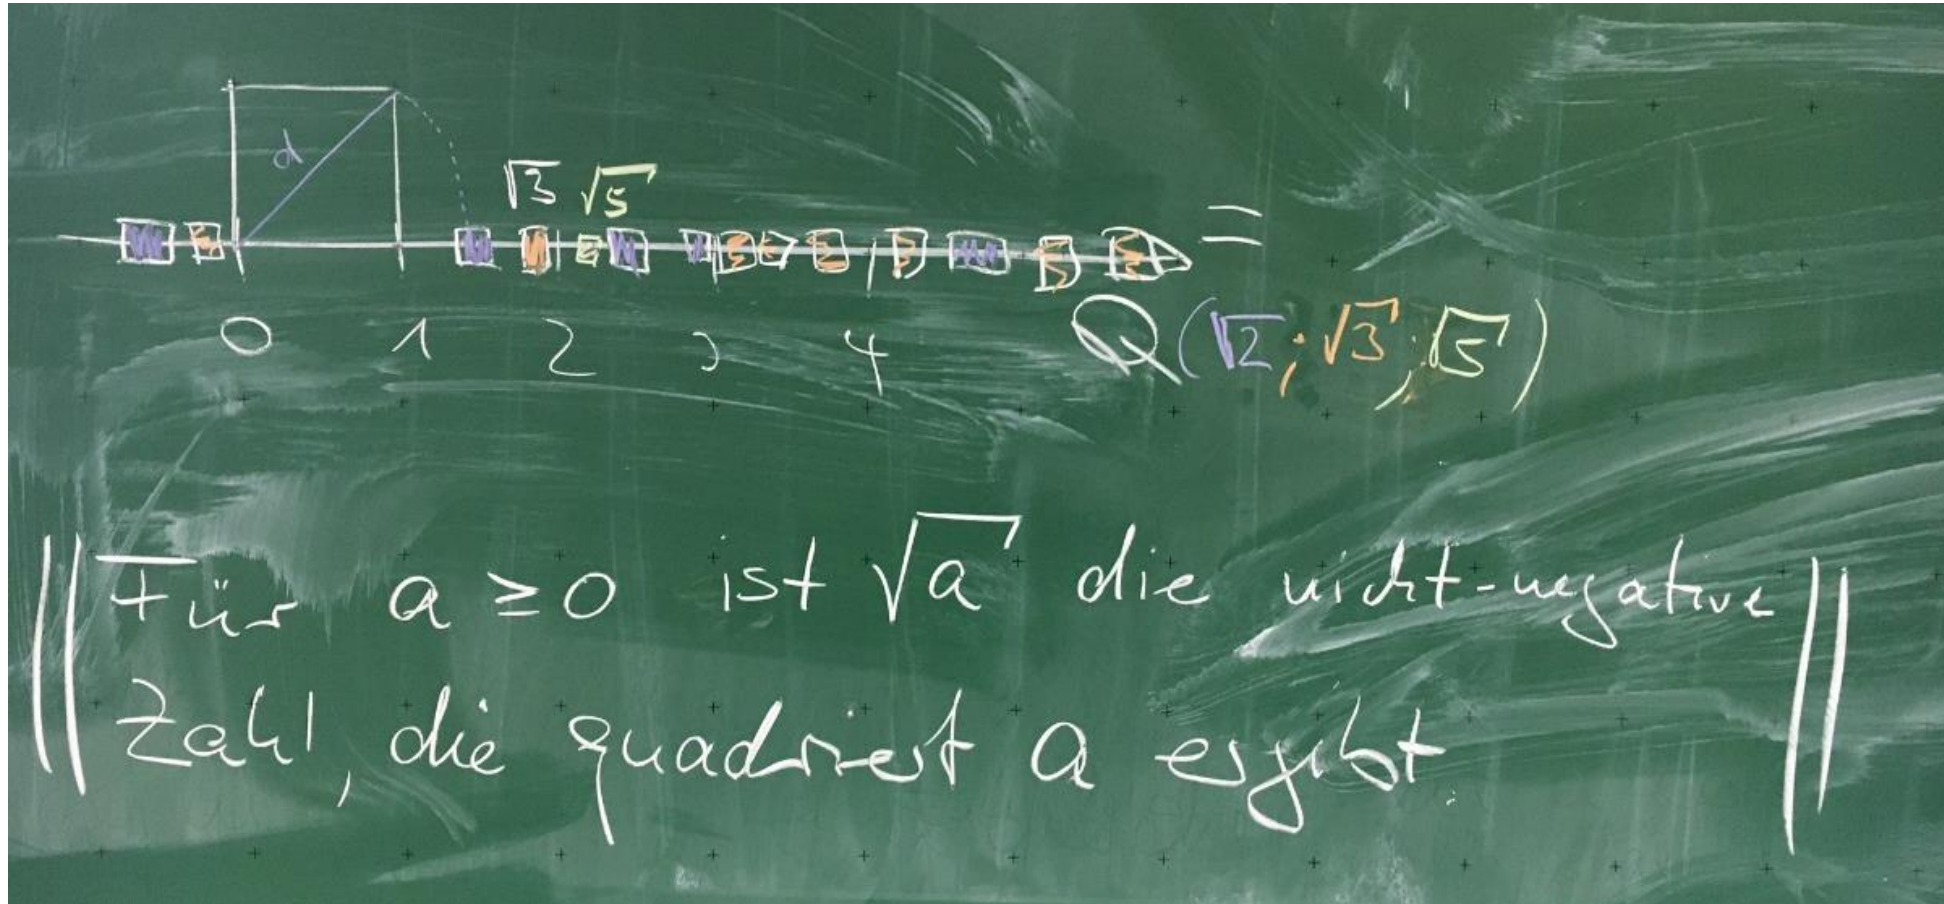 d
√3 √5
=
0 1 2 3 4 Q(√2;√3;√5)
Für a ≥ 0 ist √a die nicht-negative
Zahl, die quadriert a ergibt.